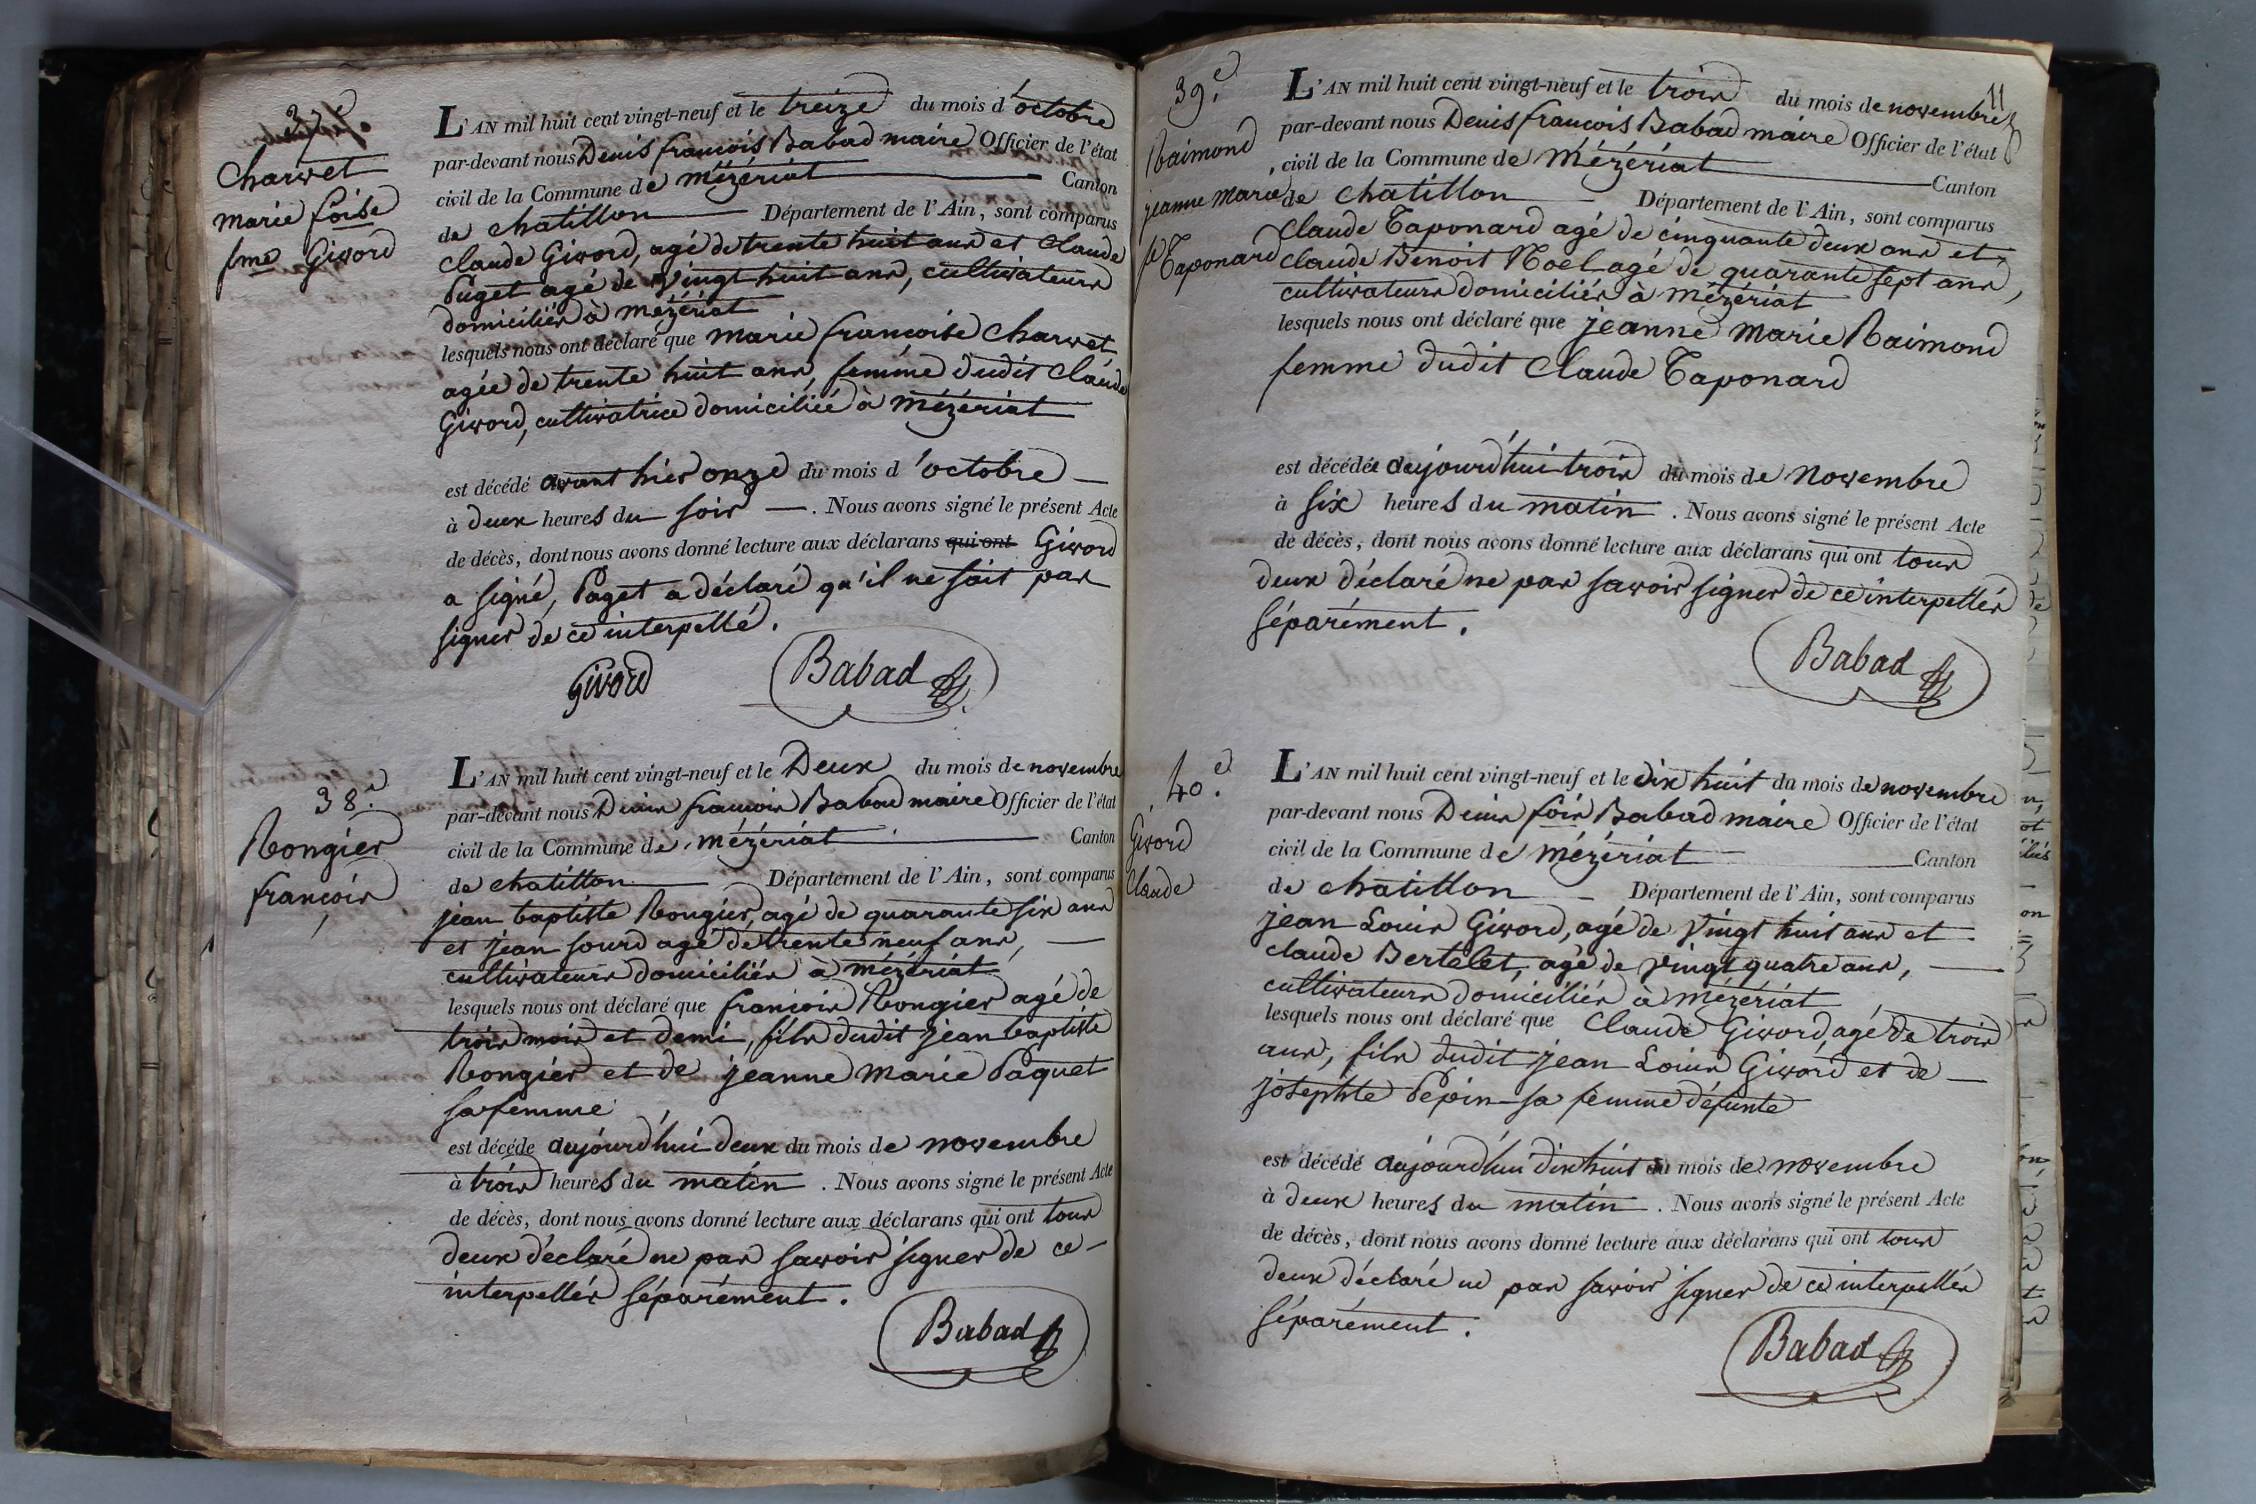 37e
Charvet
marie foise
fme Givord
L'AN mil huit cent vingt-neuf et le treize du mois d'octobre
par-devant nous Denis françois Babad maire Officier de l'état
civil de la Commune de mézériat Canton
de chatillon Département de l'Ain, sont comparus
Claude Givord, agé de trente huit ans et Claude
Puget agé de vingt huit ans, cultivateurs
domiciliés à mézériat
lesquels nous ont déclaré que marie françoise charvet
agée de trente huit ans, femme dudit Claude
Givord, cultivatrice domiciliée à mézériat
est décédé avant hier onze du mois d'octobre
à deux heures du soir. Nous avons signé le présent Acte
de décès, dont nous avons donné lecture aux déclarans qui ont Givord
a signé, Puget a déclaré qu'il ne sait pas
signer de ce interpellé.
Givord Babad
38.e
Rongier
françois
L'AN mil huit cent vingt-neuf et le Deux du mois de novembre
par-devant nous Denis françois Babad maire Officier de l'état
civil de la Commune de mézériat Canton
de chatillon Département de l'Ain, sont comparus
jean baptiste Rongier, agé de quarante six ans
et jean sourd agé de trente neuf ans,
cultivateurs domiciliés à mézériat
lesquels nous ont déclaré que françois Rongier agé de
trois mois et demi, fils dudit jean baptiste
Rongier et de jeanne marie Paquet
sa femme
est décéde aujourd'hui deux du mois de novembre
à trois heures du matin. Nous avons signé le présent Acte
de décès, dont nous avons donné lecture aux déclarans qui ont tous
deux déclaré ne pas savoir signer de ce
interpellés séparément.
Babad
11
39.e
Raimond
jeanne marie
fe Taponard
L'AN mil huit cent vingt-neuf et le trois du mois de novembre
par-devant nous Denis françois Babad maire Officier de l'état
civil de la Commune de mézériat Canton
de chatillon Département de l'Ain, sont comparus
Claude Taponard agé de cinquante deux ans et
Claude Benoit Noel agé de quarante sept ans,
cultivateurs domiciliés à mézériat
lesquels nous ont déclaré que jeanne marie Raimond
femme dudit Claude Taponard
est décédée aujourd'hui trois du mois de novembre
à six heures du matin. Nous avons signé le présent Acte
de décès, dont nous avons donné lecture aux déclarans qui ont tous
deux déclaré ne pas savoir signer de ce interpellés
séparément.
Babad
40.e
Givord
Claude
L'AN mil huit cent vingt-neuf et le dix huit du mois de novembre
par-devant nous Denis fois Babad maire Officier de l'état
civil de la Commune de mézériat Canton
de chatillon Département de l'Ain, sont comparus
jean Louis Givord, agé de vingt huit ans et
claude Bertelet, agé de vingt quatre ans,
cultivateurs domiciliés à mézériat
lesquels nous ont déclaré que Claude Givord, agé de trois
ans, fils dudit jean Louis Givord et de
josephte Pepin sa femme défunte
est décédé aujourd'hui dix huit du mois de novembre
à deux heures du matin. Nous avons signé le présent Acte
de décès, dont nous avons donné lecture aux déclarans qui ont tous
deux déclaré ne pas savoir signer de ce interpellés
séparément.
Babad